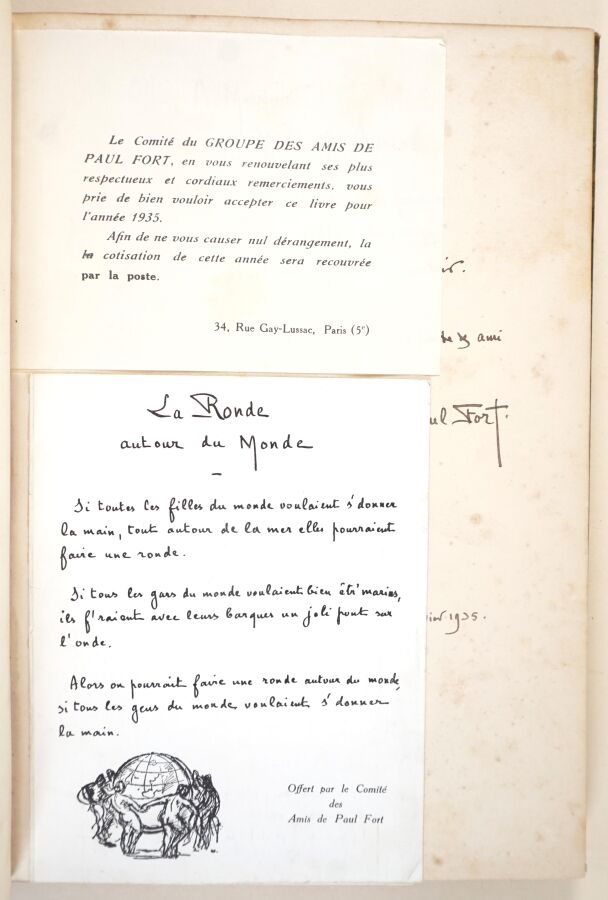 Le Comité du GROUPE DES AMIS DE
PAUL FORT, en vous renouvelant ses plus
respectueux et cordiaux remerciements, vous
prie de bien vouloir accepter ce livre pour
l'année 1935.
Afin de ne vous causer nul dérangement, la
la cotisation de cette année sera recouvrée
par la poste.
34, Rue Gay-Lussac, Paris (5e)
La Ronde
autour du Monde
Si toutes les filles du monde voulaient s'donner
la main, tout autour de la mer elles pourraient
faire une ronde.
Si tous les gars du monde voulaient bien êtr' marins,
ils f'raient avec leurs barques un joli pont sur
l'onde.
Alors on pourrait faire une ronde autour du monde,
si tous les gens du monde voulaient s'donner
la main.
Offert par le Comité
des
Amis de Paul Fort
ami
ul Fort.
1935.